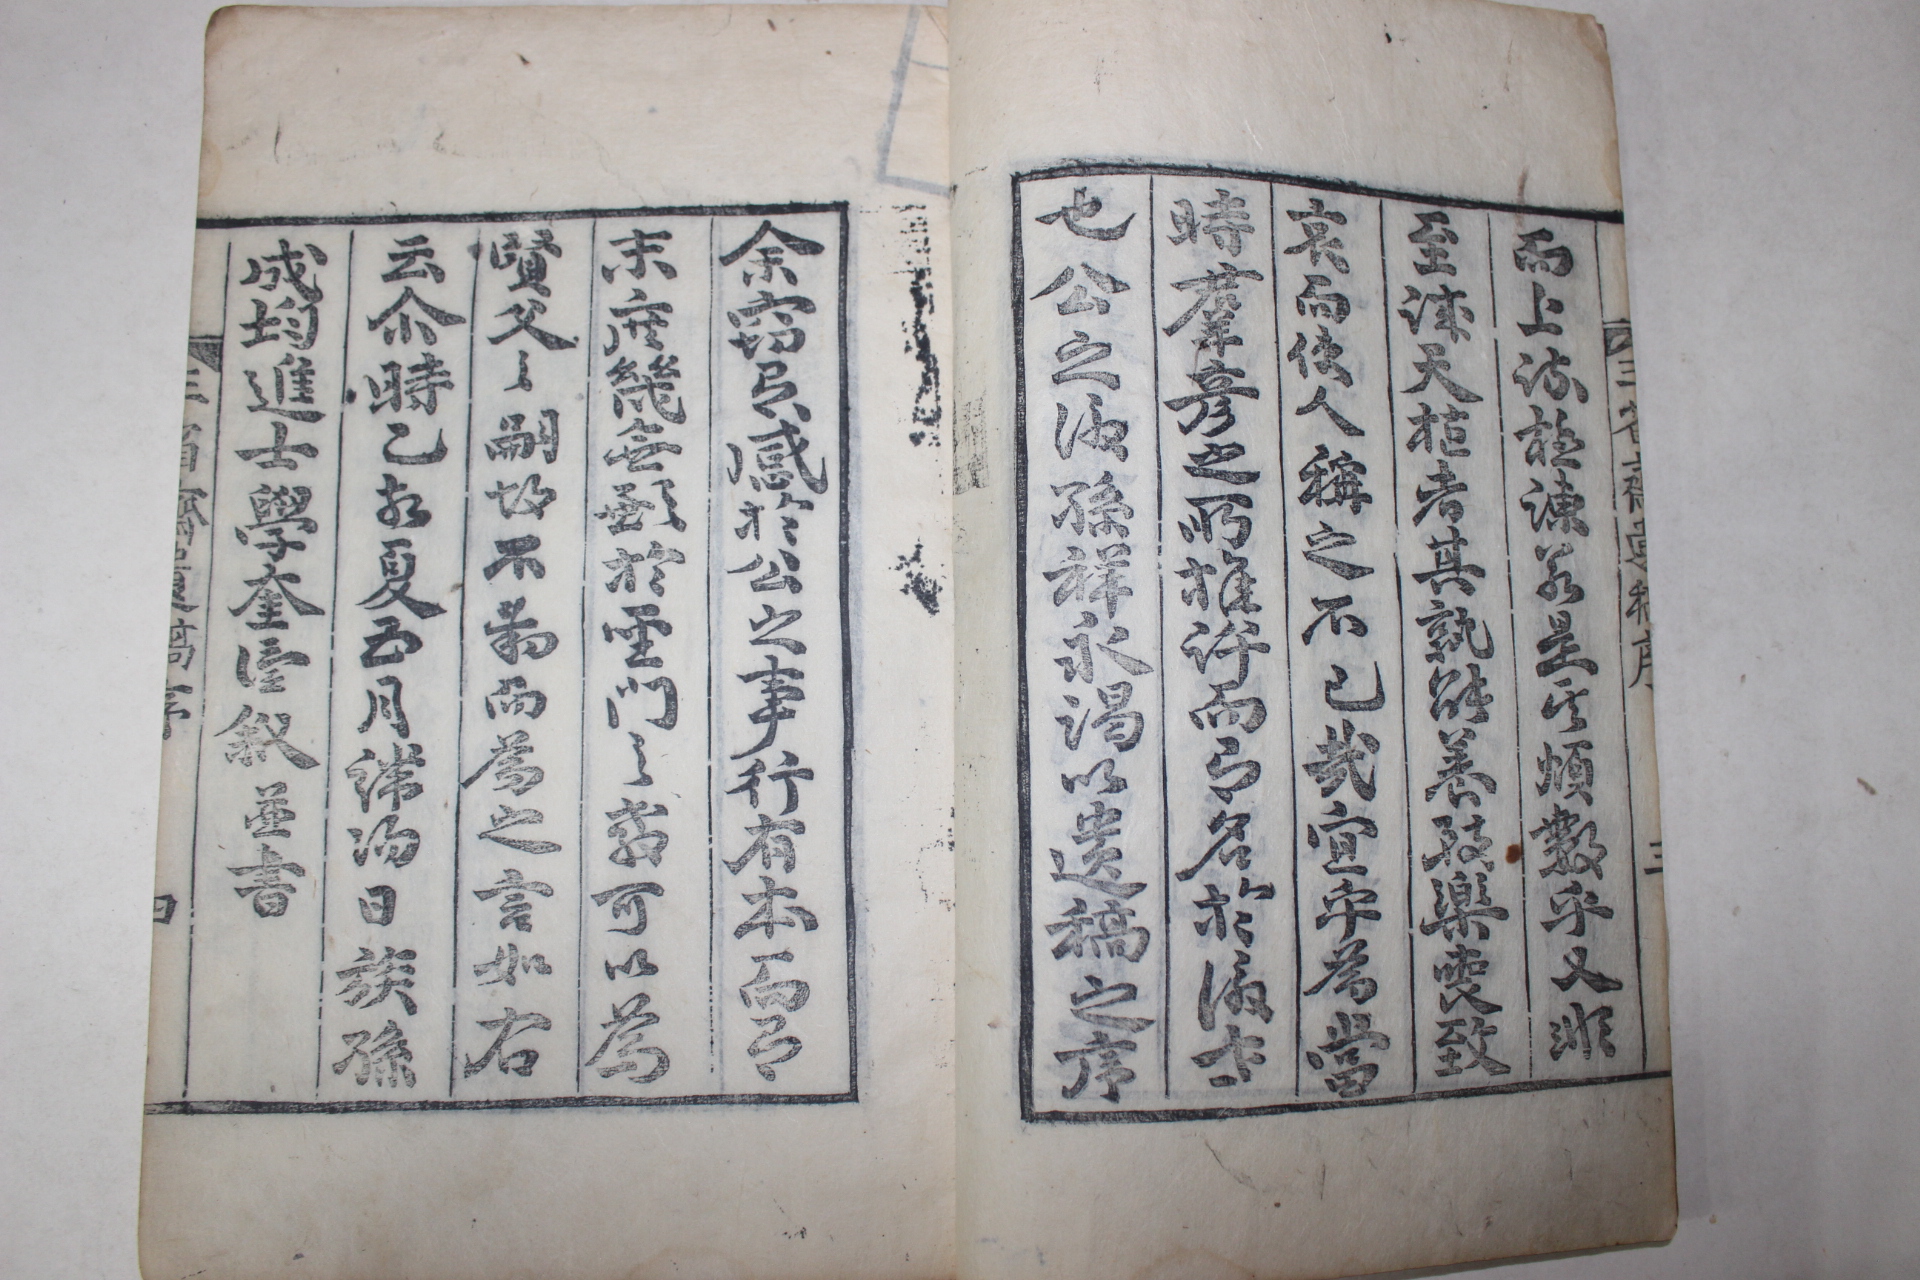 三省齋遺稿序 三
而上疏極諫若是其煩數乎又非
至誠天植者其孰能養致樂喪致
哀而使人稱之不已哉宜乎爲當
時羣彦之所推許而有名於後世
也公之後孫祥永謁以遺稿之序
余竊有感於公之事行有本而有
末庶幾無愧於聖門々當可以爲
賢父々嗣故不辭而爲之言如右
云尒時乙夘夏五月端陽日族孫
成均進士學奎謹叙並書
三省齋遺稿序 四